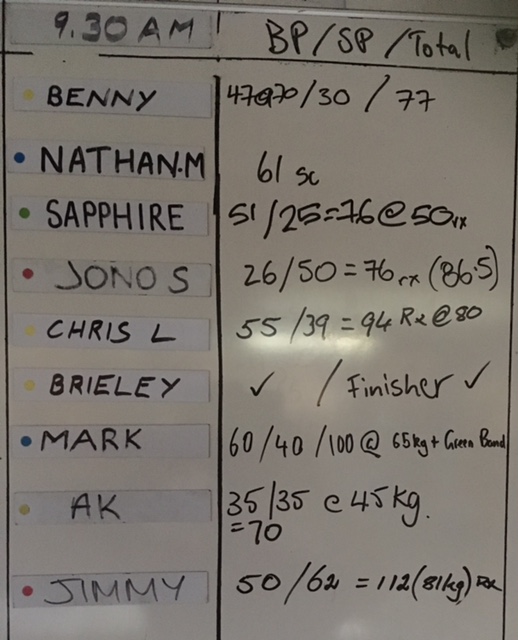 9.30 AM BP/SP/Total
BENNY 47@70/30 / 77
NATHAN.M 61 sc
SAPPHIRE 51/25=76@50rx
JONO S 26/50=76rx (86.5)
CHRIS L 55/39=94 Rx@80
BRIELEY ✓ / Finisher ✓
MARK 60/40/100@ 65kg+Green Band
AK 35/35 @ 45kg.
=70
JIMMY 50/62 = 112(81kg) Rx